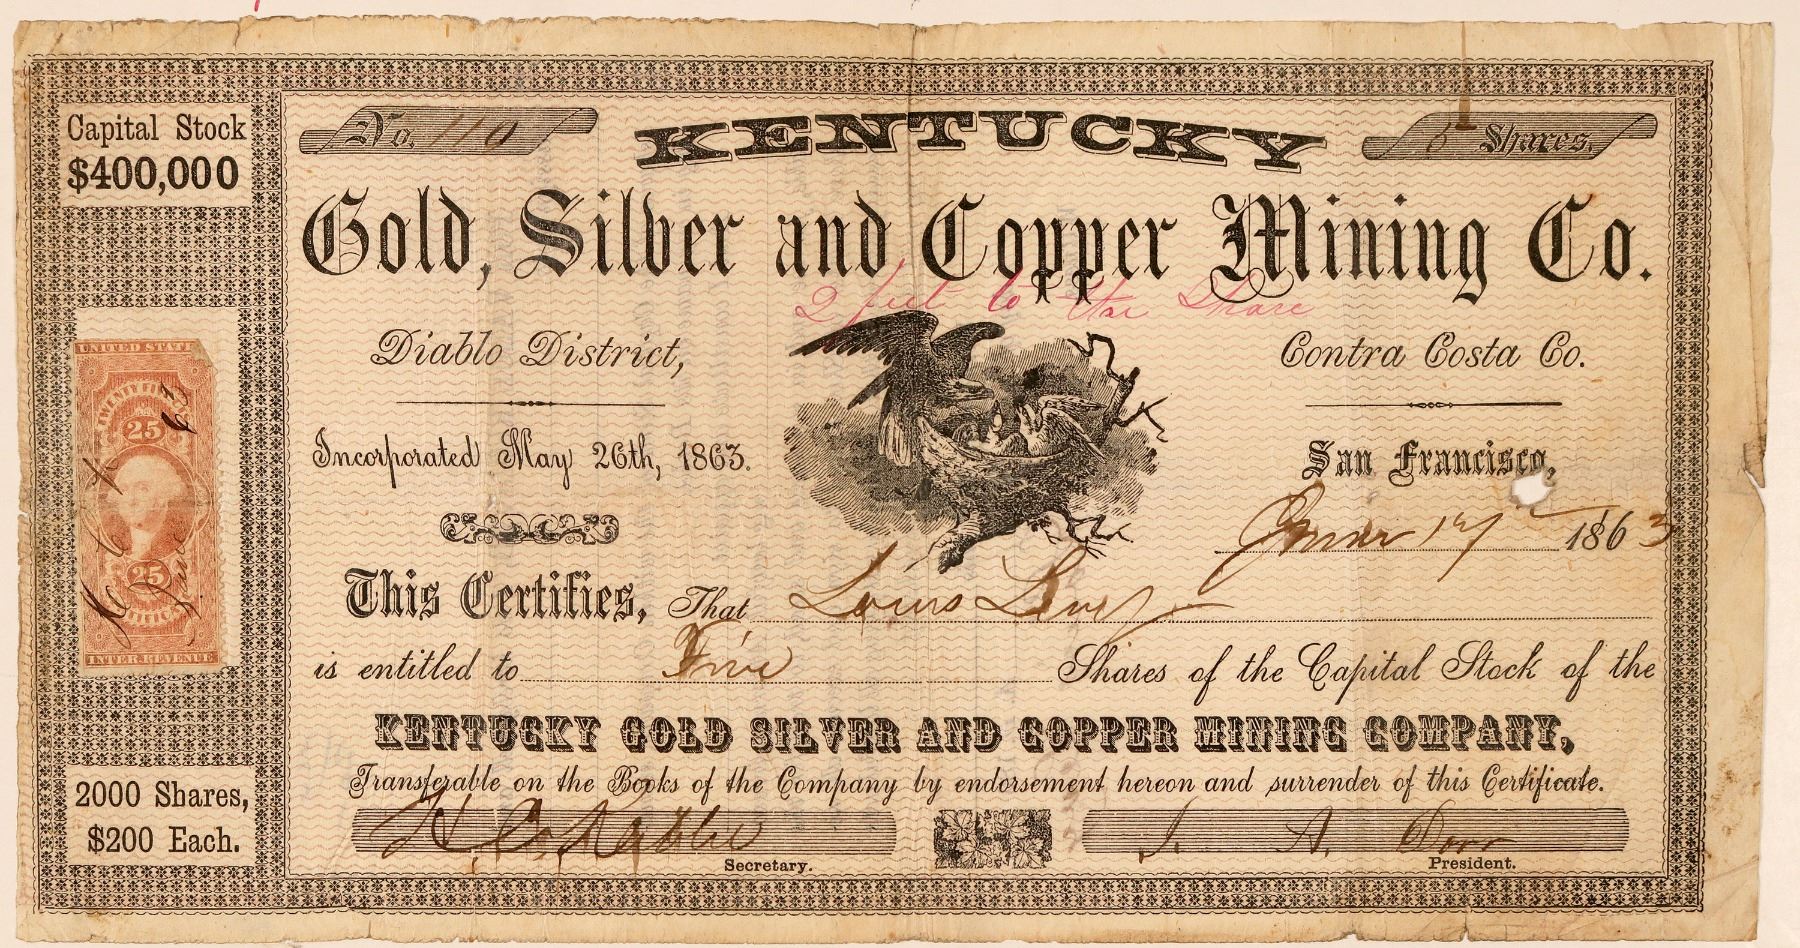 Capital Stock
$400,000
No. 110
KENTUCKY
5 Shares.
Gold, Silver and Copper Mining Co.
2 feet to the Share
Diablo District,
Contra Costa Co.
Incorporated May 26th, 1863.
San Francisco,
1863
UNITED STATES
25
25
INTER. REVENUE
This Certifies, That Louis Levy
is entitled to Five Shares of the Capital Stock of the
KENTUCKY GOLD SILVER AND COPPER MINING COMPANY,
Transferable on the Books of the Company by endorsement hereon and surrender of this Certificate.
2000 Shares,
$200 Each.
J. A. Dorr
Secretary.
President.